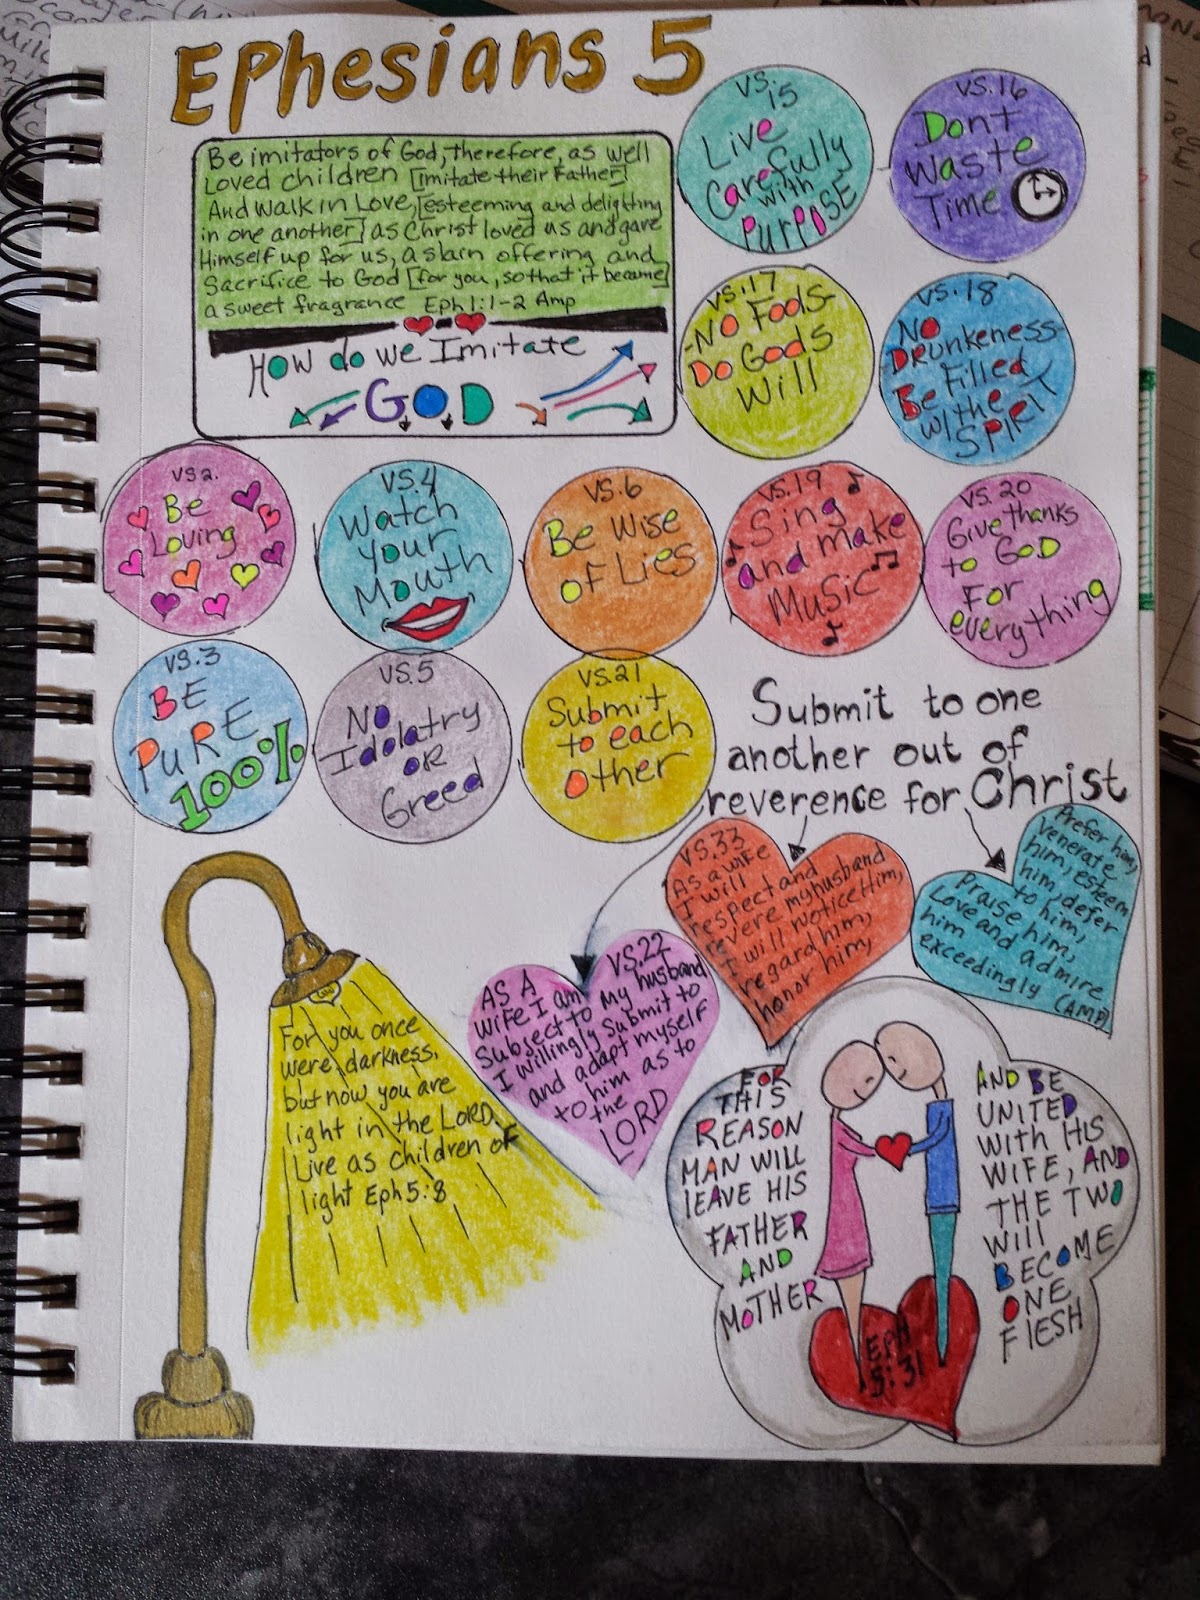 Ephesians 5
Be imitators of God, therefore, as well
Loved children [imitate their Father]
And walk in Love, [esteeming and delighting
in one another] as Christ loved us and gave
Himself up for us, a slain offering and
Sacrifice to God [for you, so that it became]
a sweet fragrance Eph 1:1-2 Amp
How do we Imitate
GOD
VS. 15
Live
Carefully
with
PURPOSE
VS. 16
Dont
Waste
Time
VS. 17
-No Fools-
Do Gods
Will
VS. 18
No
DRUnkeness
Be Filled
w/the
SPIRIT
VS 2.
Be
Loving
VS. 4
Watch
your
Mouth
VS. 6
Be Wise
of Lies
VS. 19
Sing
and make
Music
VS. 20
Give thanks
to GOD
For
everything
VS. 3
BE
PuRE
100%
VS. 5
NO
Idolatry
OR
Greed
VS. 21
Submit
to each
other
Submit to one
another out of
reverence for Christ
VS. 22
AS A
Wife I am
Subject to my husband
I willingly Submit to
and adapt myself
to him as to
the
LORD
VS. 33
As a wife
I will
respect and
revere my husband
I will notice Him,
regard him,
honor him,
Prefer him,
Venerate
him, esteem
him, defer
to him,
Praise him,
Love and admire
him
exceedingly (AMP)
For you once
were darkness,
but now you are
light in the LORD.
Live as children of
light Eph 5:8
FOR
THIS
REASON
MAN WILL
LEAVE HIS
FATHER
AND
MOTHER
AND BE
UNITED
WITH HIS
WIFE, AND
THE TWO
Will
BECOME
ONE
FlESH
EPH
5:31